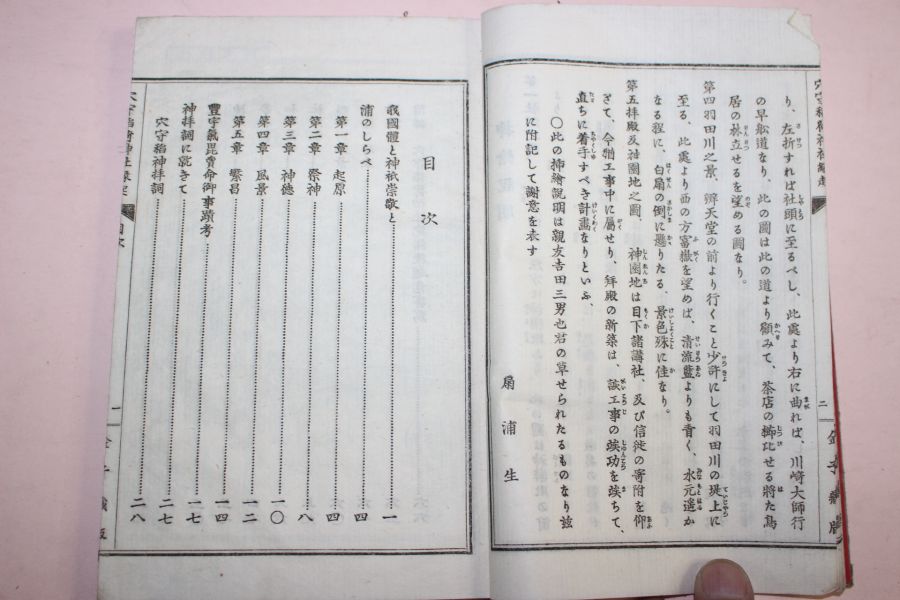 り、左折すれば社頭に至るべし、此處より右に曲れば、川崎大師行
の早舩道なり、此の圖は此の道より顧みて、茶店の櫛比せる將た鳥
居の林立せるを望める圖なり。
第四羽田川之景、辨天堂の前より行くこと少許にして羽田川の堤上に
至る、此處より西の方富嶽を望めば、清流藍よりも青く、水元遥か
なる程に、白扇の倒に懸りたる、景色殊に佳なり。
第五拜殿及神園地之圖、神園地は目下諸講社、及び信徒の寄附を仰
ぎて、今猶工事中に屬せり、拜殿の新築は、該工事の竣功を竢ちて、
直ちに着手すべき計畵なりといふ、
〇此の挿繪說明は親友吉田三男也君の草せられたるものなり玆
に附記して謝意を表す
扇浦生
二
目次
我國體と神祇崇敬と 一
浦のしらべ 四
第一章 起原 四
第二章 祭神 八
第三章 神德 一〇
第四章 風景 一二
第五章 繁昌 一四
豐宇氣毘賣命御事蹟考 一七
神拜詞に就きて 二七
穴守稲神拜詞 二八
穴守稲荷神社緣起
目次
一